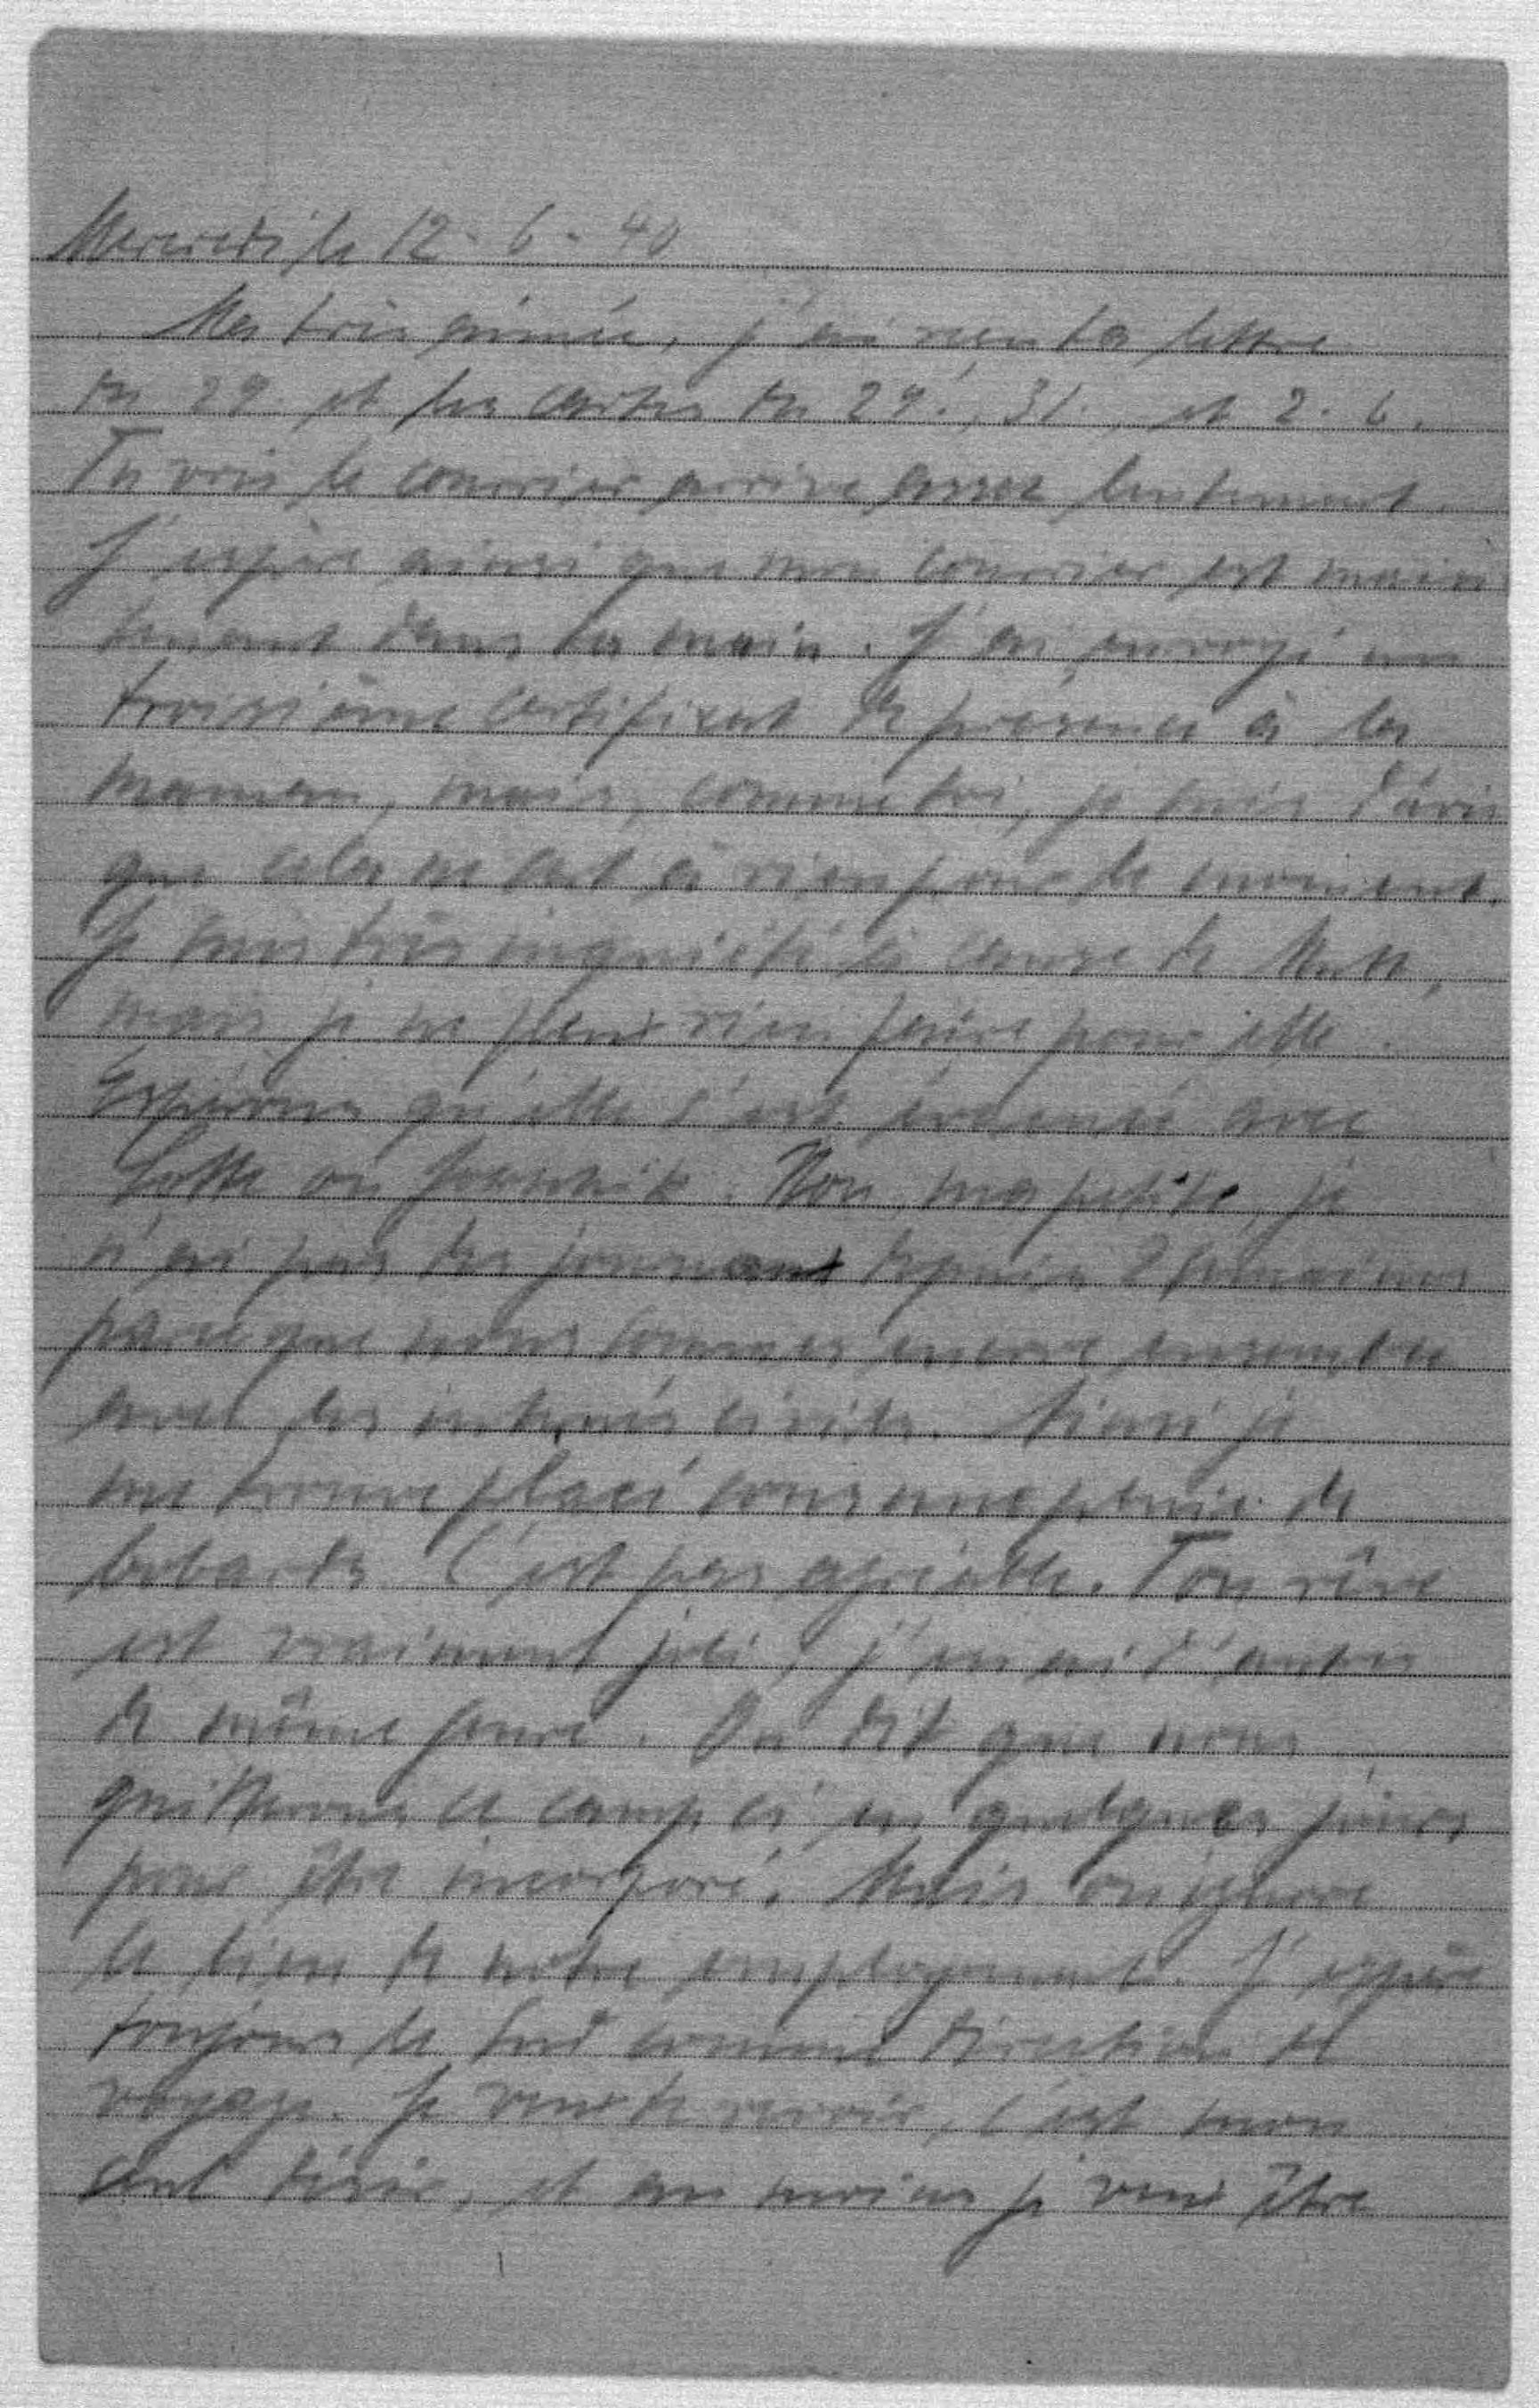 Mercredi le 12. 6. 40
Ma très aimée, j'ai reçu ta lettre
du 29. et les cartes du 29., 31., et 2. 6.
Tu vois le courrier arrive assez lentement.
J'espère ainsi que mon courrier est main
tenant dans ta main. J'ai envoyé un
troisième certificat de présence à la
maman, mais, comme toi, je suis d'avis
que cela ne sert à rien pour le moment.
Je suis très inquiété à cause de Mutti,
mais je ne peux rien faire pour elle.
Espérons qu'elle s'est évacuée avec
Lotte ou. Non, ma petite, je
n'ai pas des journaux depuis 2 semaines
parce que nous sommes encore ensemble
avec les internés civils. Ainsi je
me trouve placé sous une pluie de
bobards. C'est pas agréable. Ton rêve
est vraiment joli, j'en ai d'autres
de même genre. On dit que nous
quitterons ce camp ci en quelques jours
pour être incorporé. Mais on ignore
le lieu de notre employement. J'espère
toujours le Sud comme direction de
voyage. Je veux te revoir, c'est mon
seul désir, et au moins je veux être